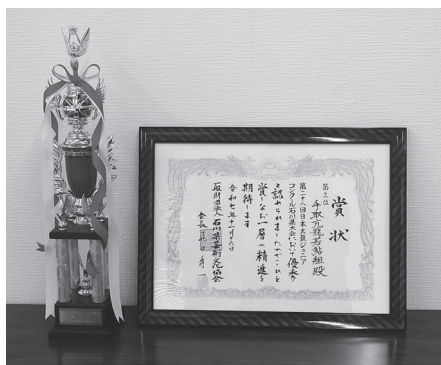 賞状
第三位
手取亢龍若鮎組殿
第二十八回日本太鼓ジュニア
コンクール石川県大会において優秀
と認められましたのでこれを
賞しなお一層の精進を
期待します
令和七年十一月十六日
一般財団法人石川県芸術文化協会
会長